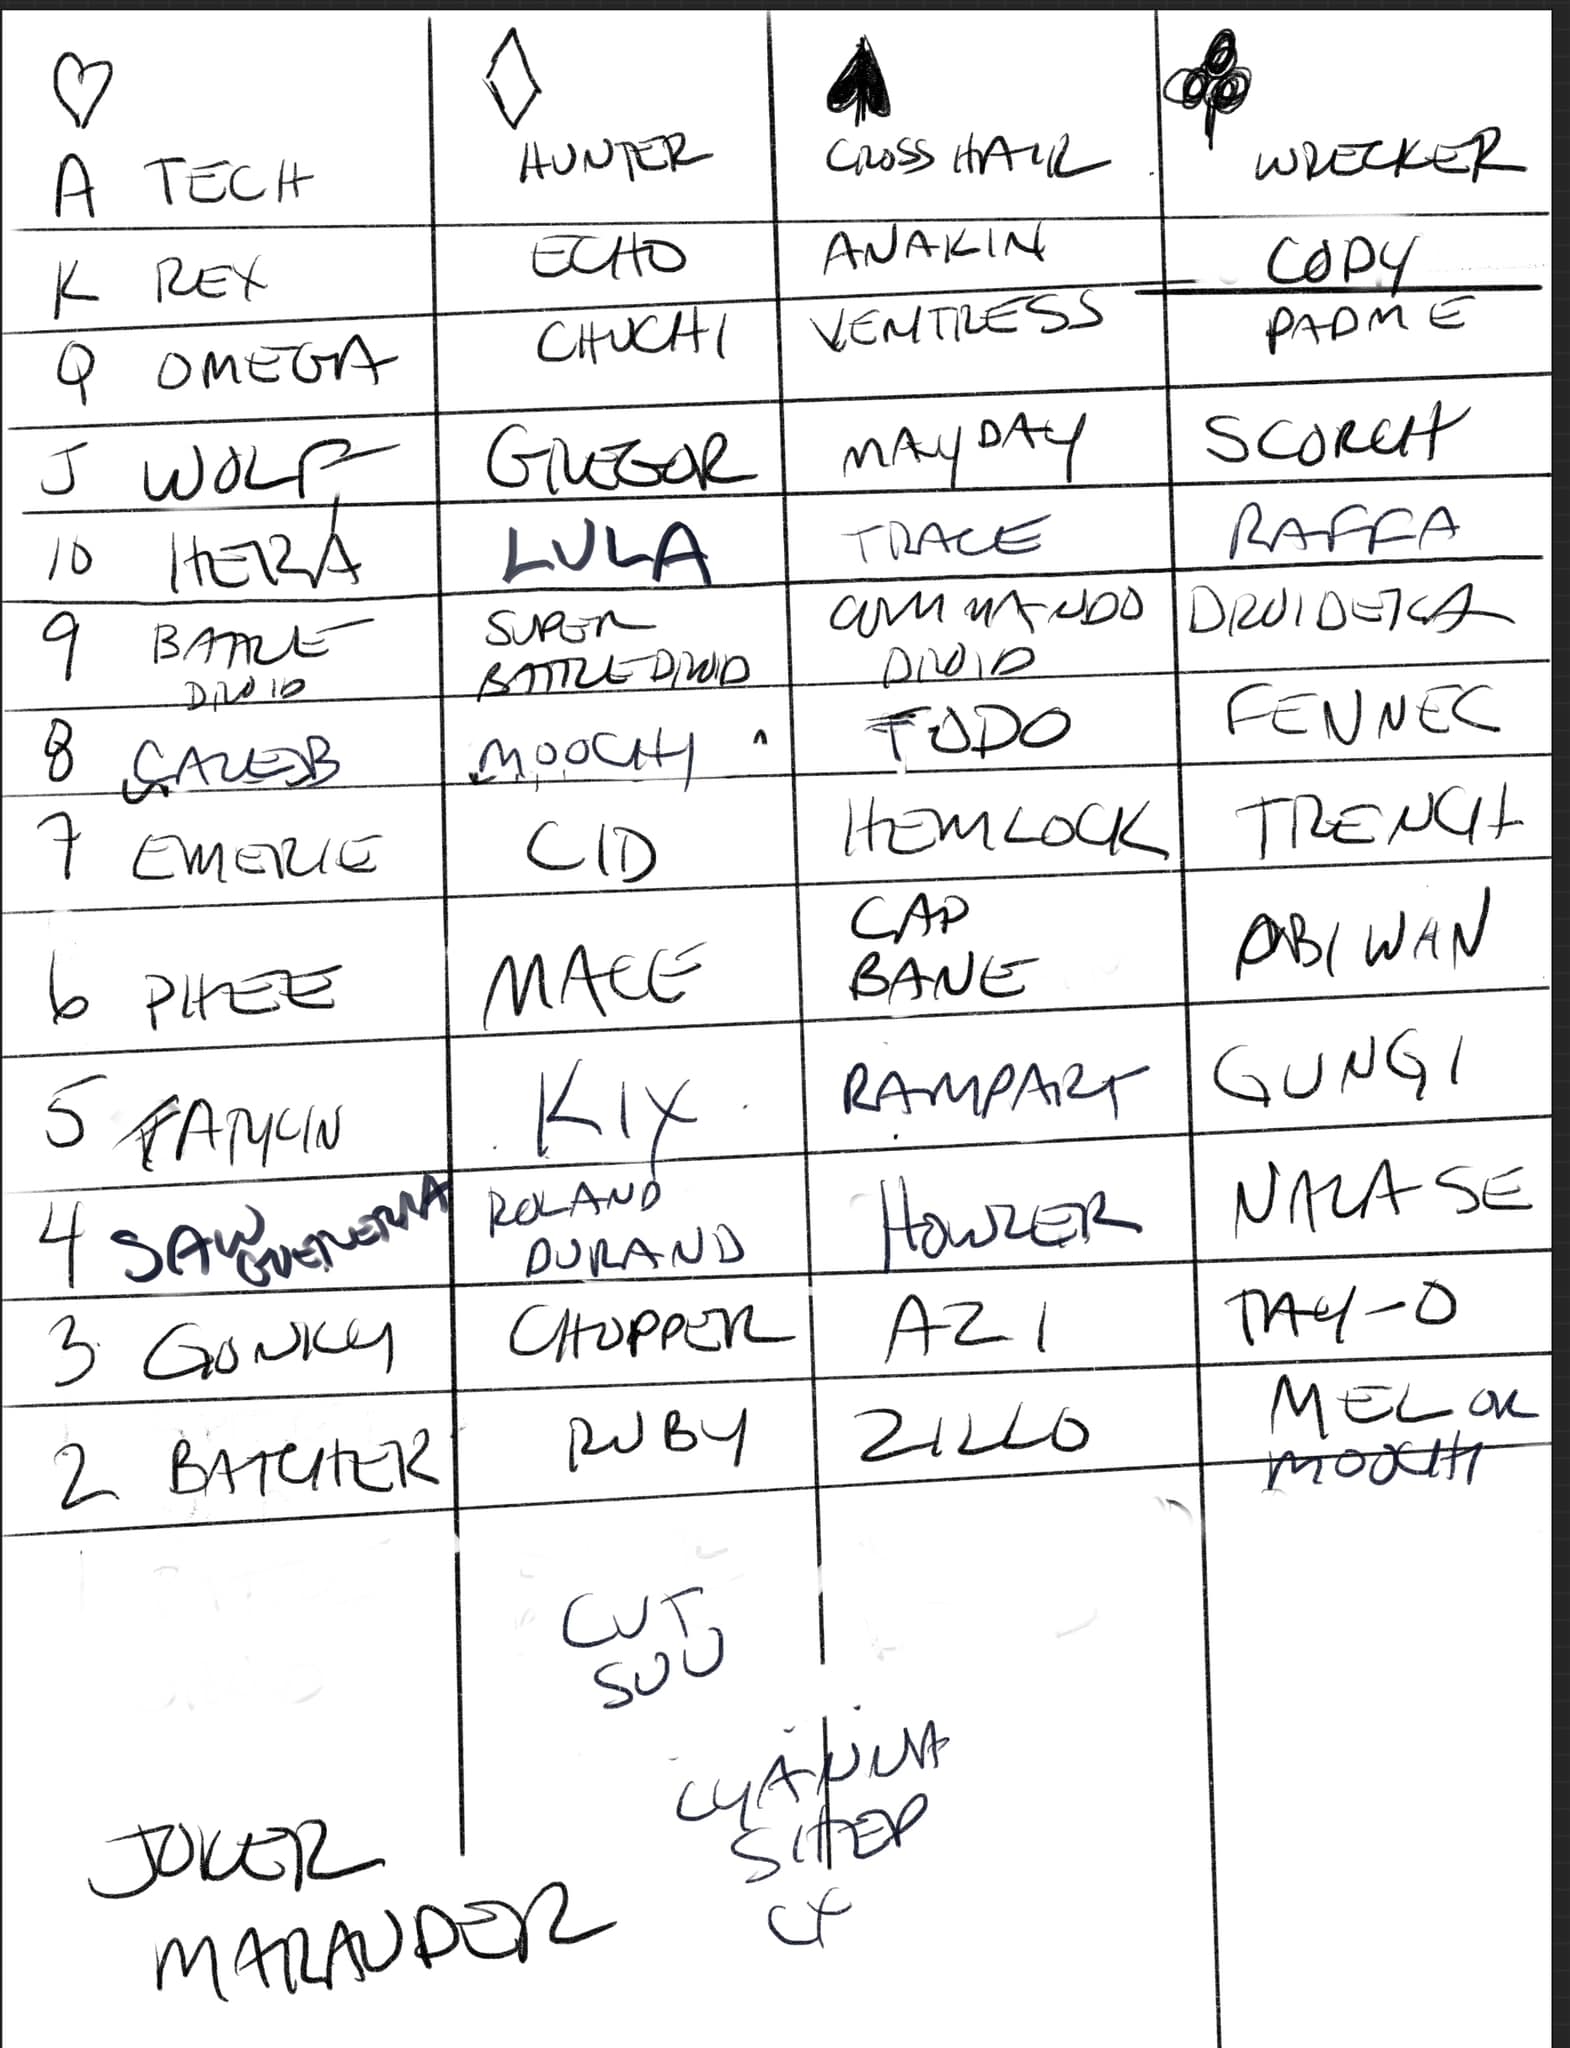 A TECH HUNTER CROSSHAIR WRECKER
K REX ECHO ANAKIN CODY
Q OMEGA CHUCHI VENTRESS PADME
J WOLF GREGOR MAYDAY SCORCH
10 HERA LULA TRACE RAFFA
9 BATTLE SUPER COMMANDO DROIDEKA
DROID BATTLE DROID DROID
8 CALEB MOOCHI TODO FENNEC
7 EMERIE CID HEMLOCK TRENCH
6 PHEE MACE CAD BANE OBI WAN
5 TARKIN KIX RAMPART GUNGI
4 SAW GUERERRA ROLAND DURAND HOWZER NALA SE
3 GONKY CHOPPER AZI TAY-O
2 BATCHER RUBY ZILLO MEL OR
MOOCHI
CUT
SUU
LYANNA
SHEP
CX
JOKER
MARAUDER